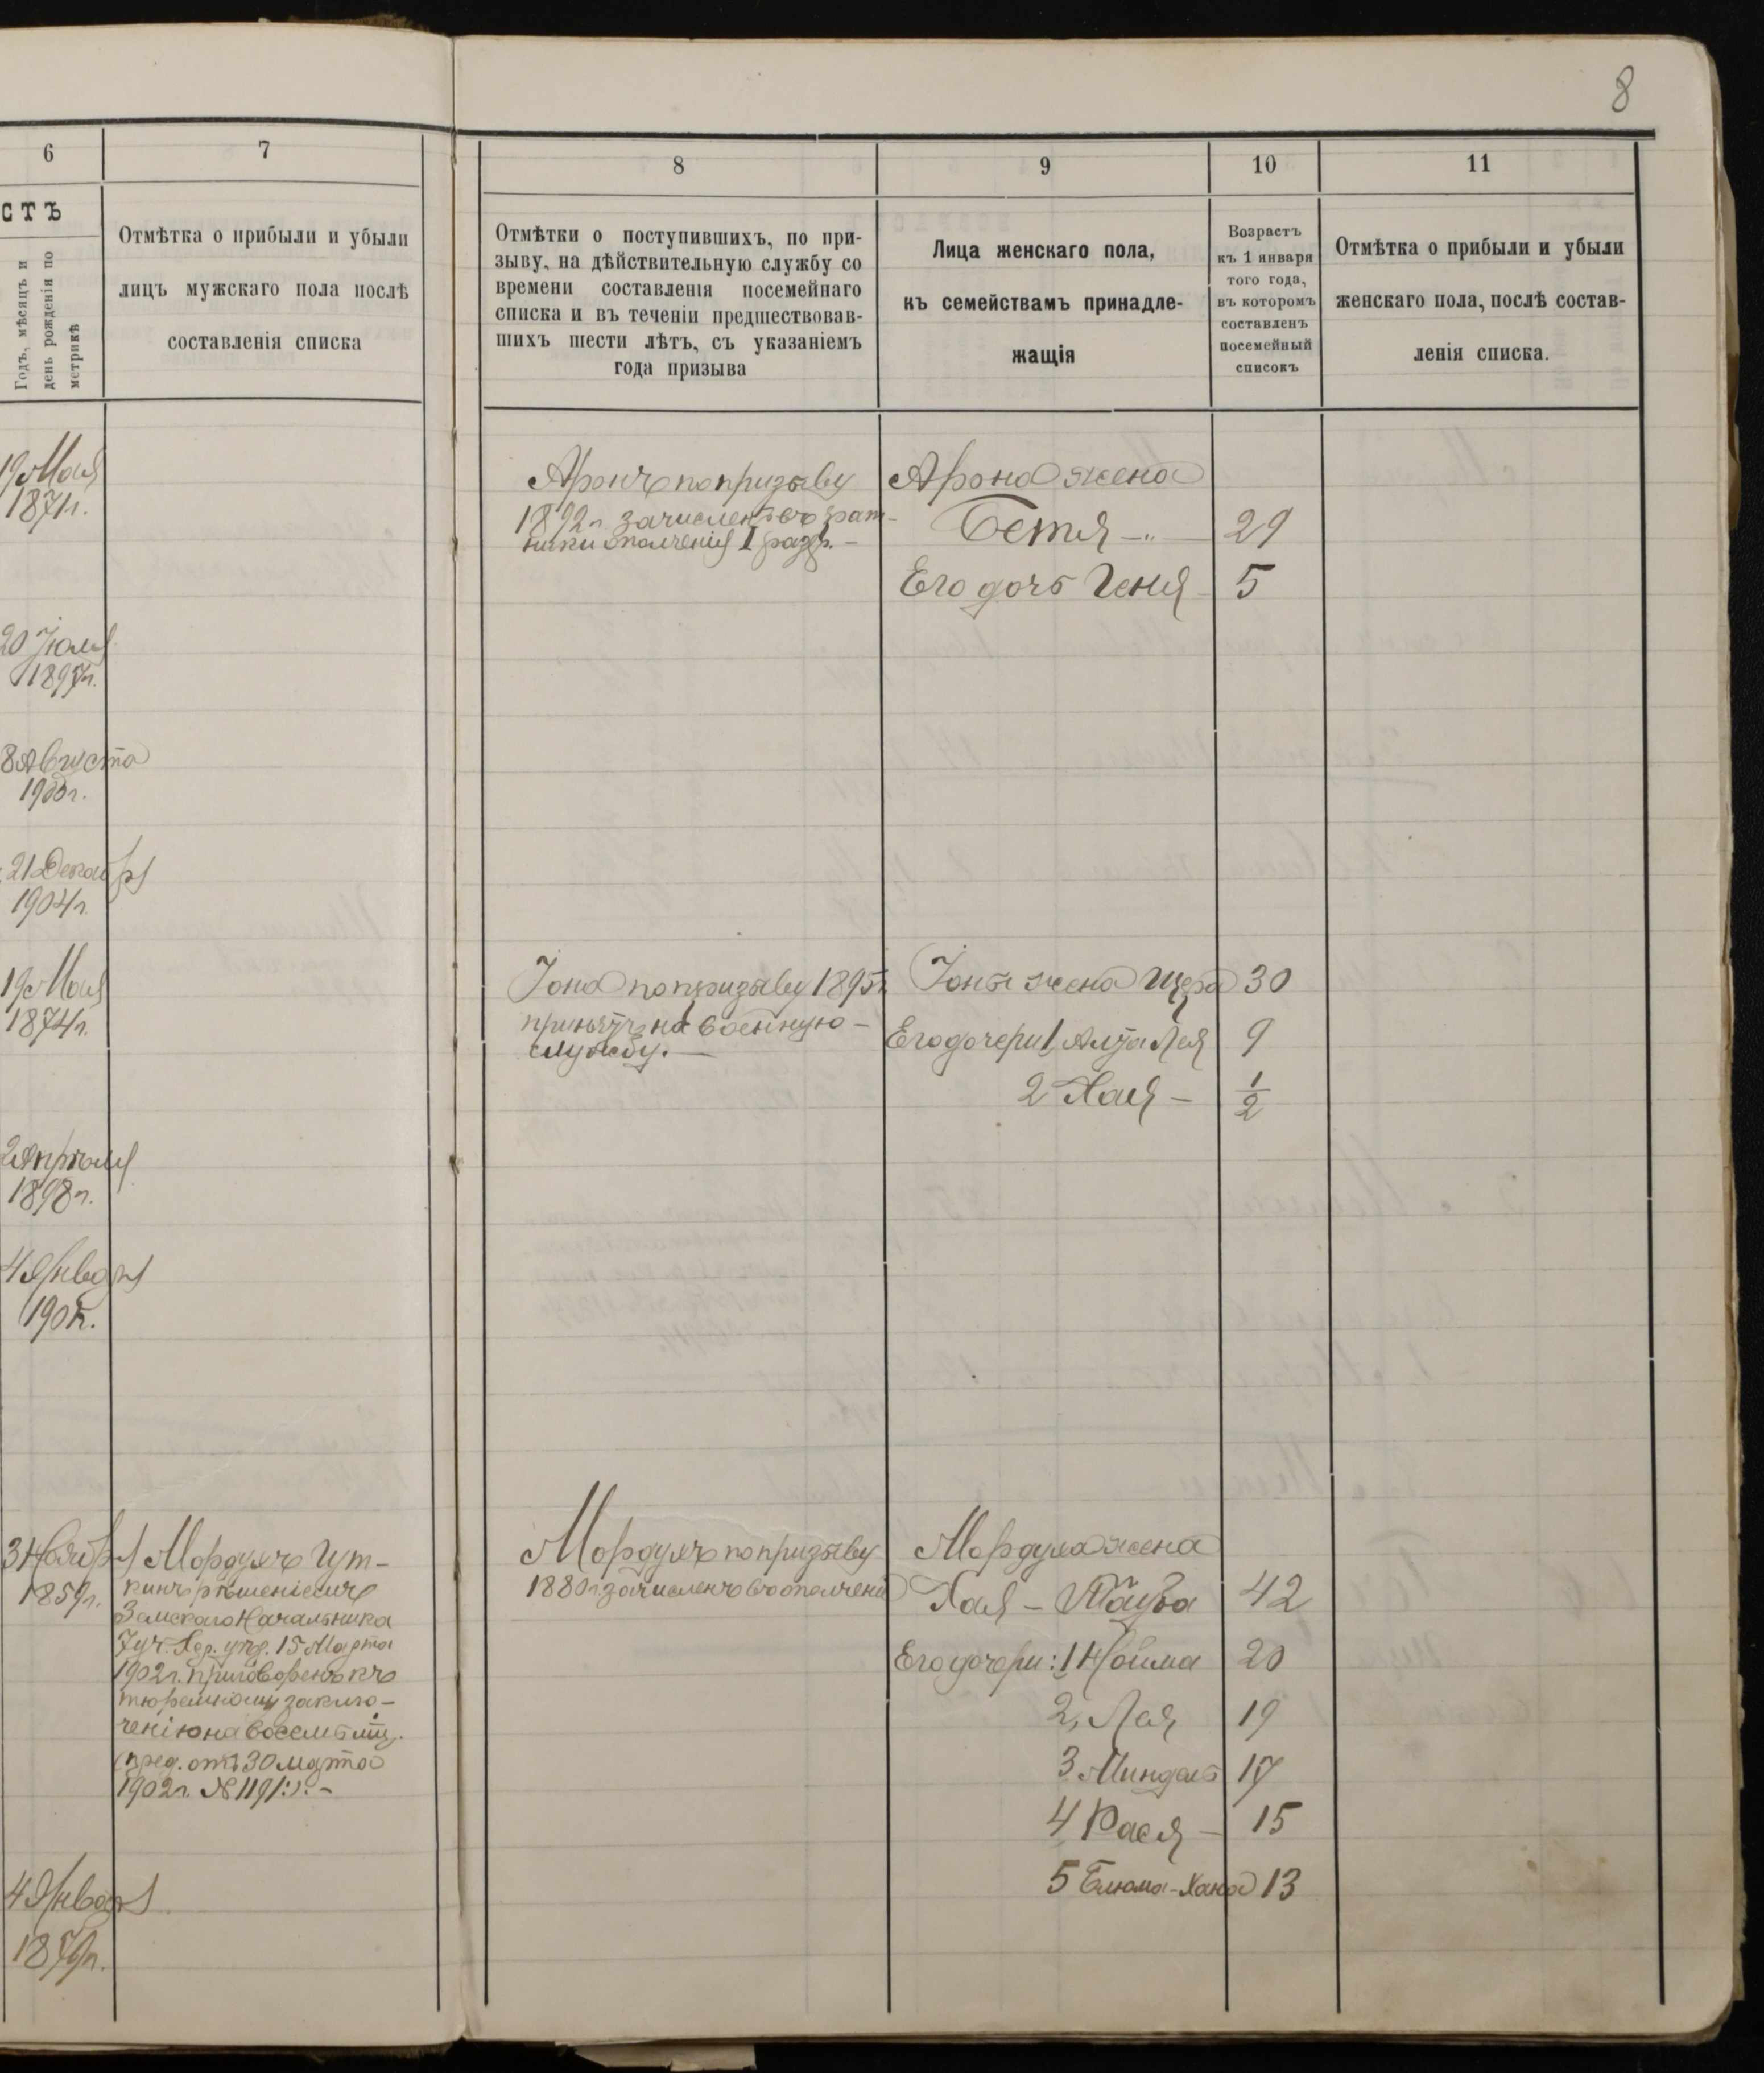 8
6
7
8
9
10
11
СТЪ
Годъ, мѣсяцъ и
день рожденія по
метрикѣ
Отмѣтка о прибыли и убыли
лицъ мужскаго пола послѣ
составленія списка
Отмѣтки о поступившихъ, по при-
зыву, на дѣйствительную службу со
времени составленія посемейнаго
списка и въ теченіи предшествовав-
шихъ шести лѣтъ, съ указаніемъ
года призыва
Лица женскаго пола,
къ семействамъ принадле-
жащія
Возрастъ
къ 1 января
того года,
въ которомъ
составленъ
посемейный
списокъ
Отмѣтка о прибыли и убыли
женскаго пола, послѣ состав-
ленія списка.
19 Мая
1871г.
Аронъ по призыву
1892г. зачисленъ въ рат-
ники ополченія I разр. -
Арона жена
Бетя -"- 29
Его дочь Геня 5
20 Іюля
1897г.
8 Августа
1900г.
21 Декабря
1904г.
19 Мая
1874г.
Іона по призыву 1895г.
принятъ на военную -
службу. -
Іоны жена Шера 30
Его дочери 1, Алта Лея 9
2 Хая - 1/2
2 Апрѣля
1898г.
4 Января
190
3 Ноября
1859г.
Мордухъ Гут-
кинъ рѣшеніемъ
Земскаго Начальника
7 уч. Хер. уѣзд. 15 Марта
1902г. приговоренъ къ
тюремному заклю-
ченію на восемь мѣс.
(пред. отъ 30 марта
1902г. № 1191:). -
Мордухъ по призыву
1880г. зачисленъ въ ополченіе
Мордуха жена
Хая - Тауба 42
Его дочери: 1 Нойма 20
2, Лея 19
3 Миндель 17
4 Рася - 15
5 Блюма-Хана 13
4 Января
1879г.